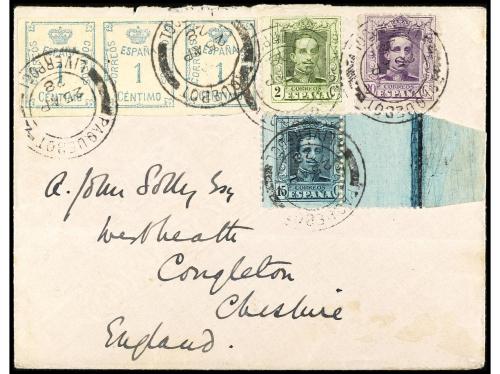 CORREOS ESPAÑA 1 CÉNTIMO
CORREOS ESPAÑA 1 CÉNTIMO
CORREOS ESPAÑA 1 CÉNTIMO
CORREOS
2 Cs
ESPAÑA
CORREOS
20 Cs
ESPAÑA
CORREOS
15
ESPAÑA
LIVERPOOL
PAQUEBOT
PAQUEBOT
PAQUEBOT
A. John Solly Esq
Westheath
Congleton
Cheshire
England.